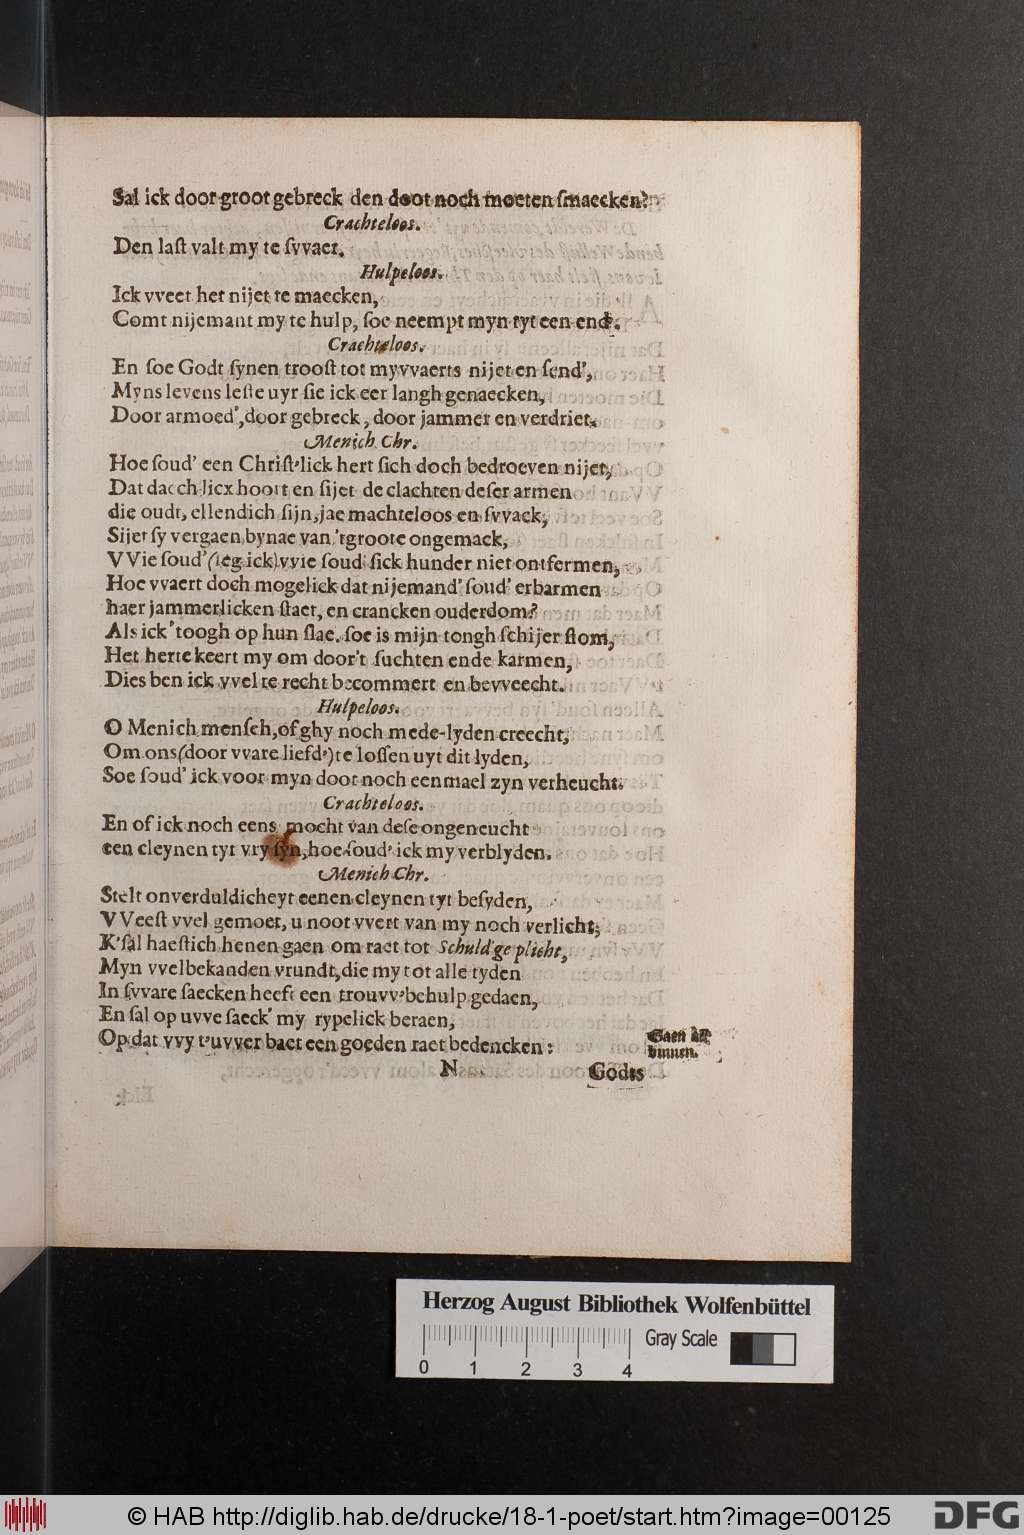 Sal ick door groot gebreck den doot noch moeten ſmaecken?
Crachteloos.
Den laſt valt my te ſvvaer.
Hulpeloos.
Ick vveet het nijet te maecken,
Comt nijemant my te hulp, ſoe neempt myn tyt een end'.
Crachteloos.
En ſoe Godt ſynen trooſt tot myvvaerts nijet en ſend',
Myns levens leſte uyr ſie ick eer langh genaecken,
Door armoed', door gebreck, door jammer en verdriet.
Menich Chr.
Hoe ſoud' een Chriſt'lick hert ſich doch bedroeven nijet,
Dat daechlicx hoort en ſijet de clachten deſer armen
die oudt, ellendich ſijn, jae machteloos en ſvvack,
Sijet ſy vergaen bynae van 'tgroote ongemack,
VVie ſoud' (ſeg ick) vvie ſoud' ſick hunder niet ontfermen,
Hoe vvaert doch mogelick dat nijemand' ſoud' erbarmen
haer jammerlicken ſtaet, en crancken ouderdom?
Als ick 'toogh op hun ſlae, ſoe is mijn tongh ſchijer ſtom,
Het herte keert my om door't ſuchten ende karmen,
Dies ben ick vvel te recht becommert en bevveecht.
Hulpeloos.
O Menich menſch, of ghy noch mede-lyden creecht,
Om ons (door vvare liefd') te loſſen uyt dit lyden,
Soe ſoud' ick voor myn doot noch eenmael zyn verheucht.
Crachteloos.
En of ick noch eens mocht van deſe ongeneucht
een cleynen tyt vry ſyn, hoe ſoud' ick my verblyden.
Menich Chr.
Stelt onverduldicheyt eenen cleynen tyt beſyden,
VVeeſt vvel gemoet, u noot vvert van my noch verlicht,
K'ſal haeſtich henen gaen om raet tot Schuld'ge plicht,
Myn vvelbekanden vrundt, die my tot alle tyden
In ſvvare ſaecken heeft een trouvv' behulp gedaen,
En ſal op uvve ſaeck' my rypelick beraen,
Op dat vvy t'uvver baet een goeden raet bedencken:
Gaen all'
binnen.
N
Godts
Herzog August Bibliothek Wolfenbüttel
Gray Scale
0 1 2 3 4
© HAB http://diglib.hab.de/drucke/18-1-poet/start.htm?image=00125
DFG